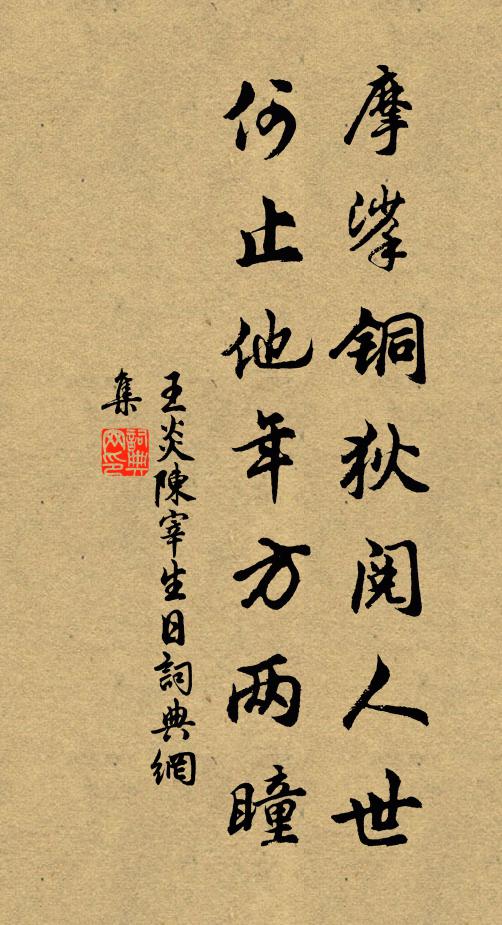 摩挲铜狄阅人世
何止他年方两瞳
王炎陳宰生日詞典網
集
詞典
网印